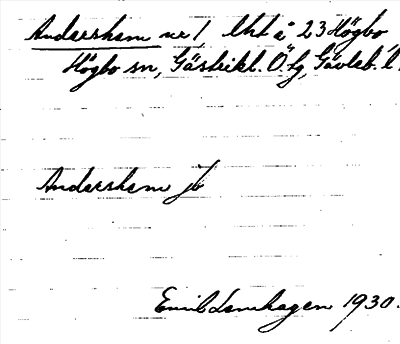 Andershem nr 1 lht å 23 Högbo,
Högbo sn, Gästrikl. Ö. fg, Gävleb. l.
Andershem jb
Emil Lennhagen 1930.